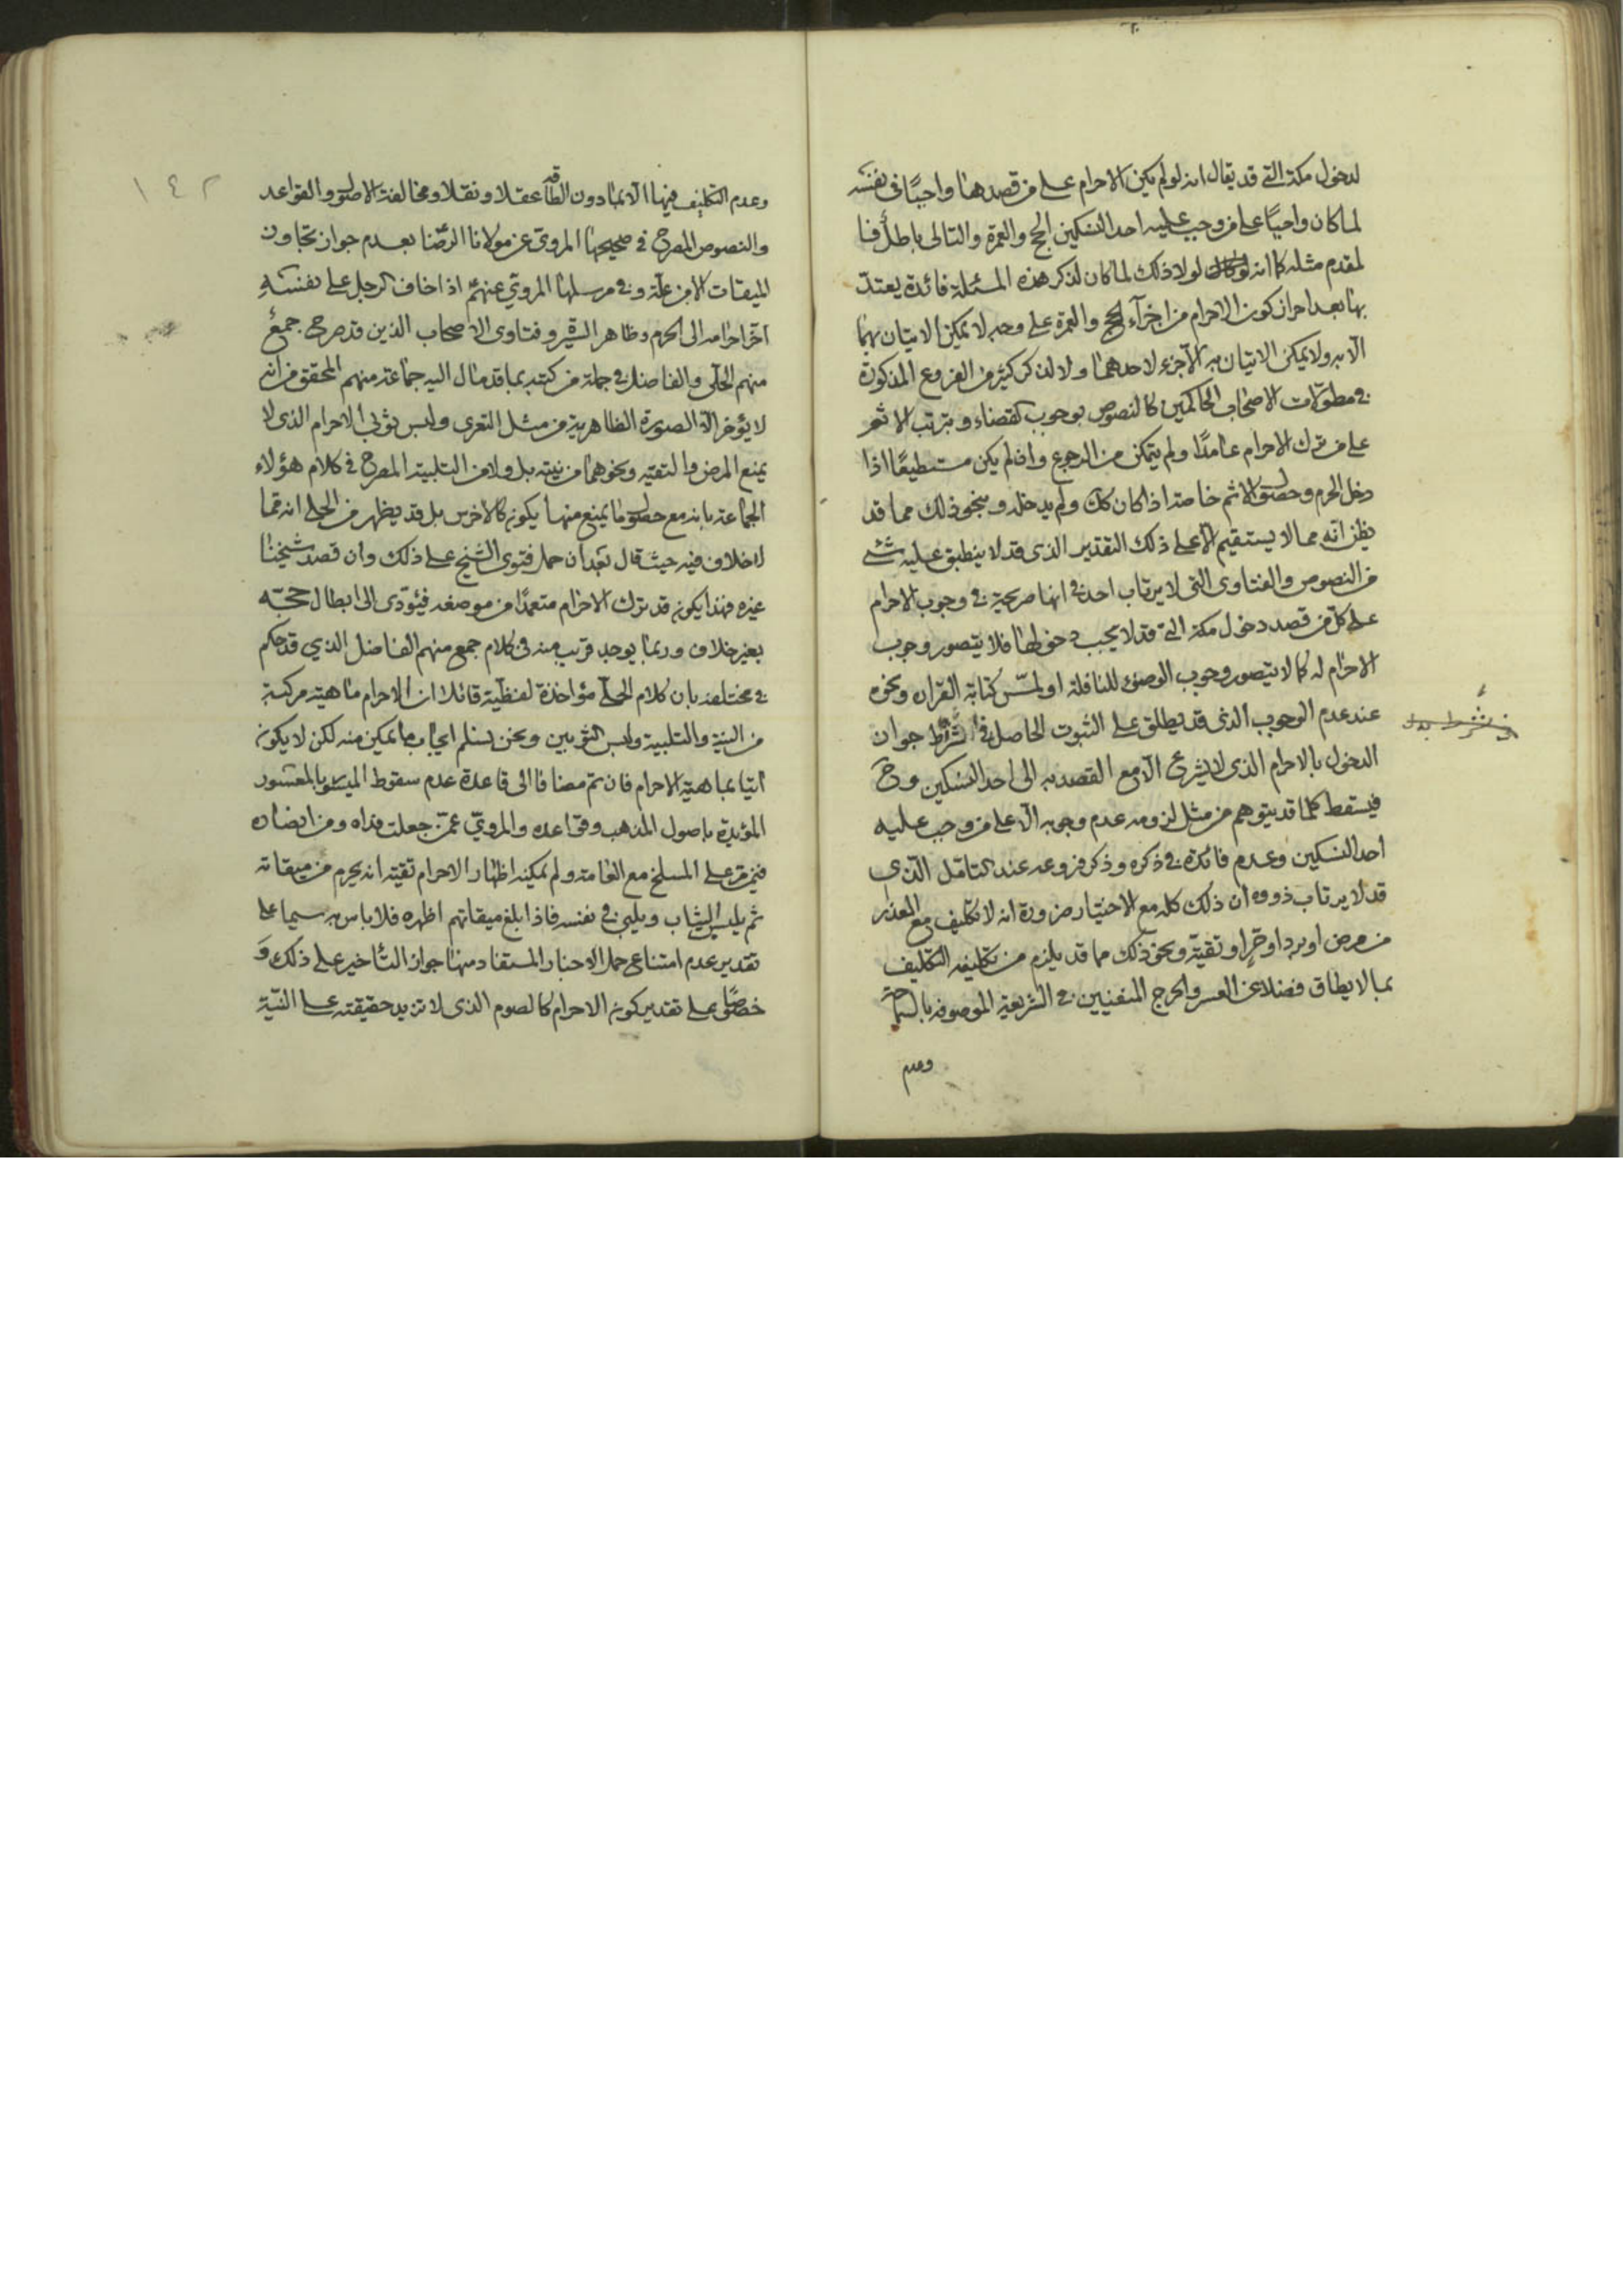 لدخول مكة التي قد يقال انه لو لم يكن الاحرام على من قصدها واجبًا فى نفسه
لما كان واجبًا على من وجب عليه احد النسكين الحج والعمرة والتالى باطل فا
لمقدم مثله كما انه لولا ذلك لما كان لذكر هذه المسئلة فائدة يعتدّ
بها بعد احراز كون الاحرام من اجزآء الحج والعمرة على وجه لا يمكن الاتيان بهما
الّا به ولا يمكن الاتيان به الّا جزء لاحدهما ولا لذكر كثير من الفروع المذكورة
فى مطوّلات الاصحاب الحاكمين كالنصوص بوجوب القضاء وبترتب الاثم
على من ترك الاحرام عامدًا ولم يتمكن من الرجوع وان لم يكن مستطيعًا اذا
دخل الحرم وحصول الاثم خاصة اذا كان كك ولم يدخله وبنحو ذلك مما قد
يظن انّه مما لا يستقيم الّا على ذلك التقدير الذى قد لا ينطبق عليه شئ
من النصوص والفتاوى التى لا يرتاب احد فى انها صريحة فى وجوب الاحرام
على كلّ من قصد دخول مكة التى قد لا يجب دخولها فلا يتصور وجوب
الاحرام له كما لا يتصور وجوب الوضوء للنافلة او لمسّ كتابة القران ونحوه
عند عدم الوجوب الذى قد يطلق على الثبوت الحاصل فى شرط جواز
الدخول بالاحرام الذى لا يشرع الّا مع القصد به الى احد النسكين وح
فيسقط كلما قد يتوهم من مثل لزومه عدم وجوبه الّا على من وجب عليه
احد النسكين وعدم فائدة فى ذكره وذكر فروعه عند التامّل الّذى
قد لا يرتاب ذووه ان ذلك كله مع الاختيار ضرورة انه لا تكليف مع العذر
من مرض او برد او حّر او تقيّة ونحو ذلك مما قد يلزم من تكليفه التكليف
بما لا يطاق فضلا عن العسر والحرج المنفيين فى الشريعة الموصوفة بالسماحة
وعدم
١٤٢
وعدم التكليف فيها الّا بما دون الطاقه عقلا ونقلا ومخالفة الاصول والقواعد
والنصوص المصرح فى صحيحها المروى عن مولانا الرّضا بعدم جواز تجاوز
الميقات الا من علّة وفى مرسلها المروىّ عنهم اذا خاف الرجل على نفسه
اخّر احرامه الى الحرم وظاهر السيرة وفتاوى الاصحاب الذين قد صرح جمع
منهم الحلّى والفاضل فى جملة من كتبه بما قد مال اليه جماعة منهم المحقق من انه
لا يؤخر الّا الصورة الظاهرية من مثل التعرى ولبس ثوبى الاحرام الذى لا
يمنع المرض والتقيه ونحوهما من نيته بل ولا من التلبية المصرح فى كلام هؤلاء
الجماعة بانه مع حصول ما يمنع منها يكون كالاخرس بل قد يظهر من الحلى انه مما
لا خلاف فيه حيث قال بعد ان حمل فتوى الشيخ على ذلك وان قصد شيخنا
غيره فهذا يكون قد ترك الاحرام متعمدًا من موضعه فيؤدى الى ابطال حجّه
بغير خلاف وربما يوجد قريب منه فى كلام جمع منهم الفاضل الذي قد حكم
فى مختلفه بان كلام الحلّى مؤاخذة لفظيّة قائلا ان الاحرام ماهية مركبة
من النية والتلبية ولبس الثوبين ونحن نسلم ايجاب ما يمكن منه لكن لا يكون
اتيا بماهية الاحرام فان تم مضافا الى قاعدة عدم سقوط الميسور بالمعسور
المؤيدة باصول المذهب وقواعده والمروىّ عمّن جعلت فداه ومن انصاره
فيمن مر على المسلخ مع العامة ولم يمكنه اظهار الاحرام تقيّة انه يحرم من ميقاته
ثم يلبس الثياب ويلبى فى نفسه فاذا بلغ ميقاتهم اظهره فلا باس به سيما على
تقدير عدم امتناع حمل الاخبار المستفاد منها جواز التأخير على ذلك وَ
خصوصًا على تقدير كون الاحرام كالصوم الذى لا تزيد حقيقته على النيّة